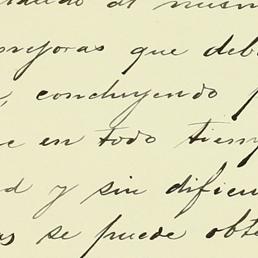 al mism
mejoras que deb
, concluyendo p
e en todo tiemp
d y sin dificu
as se puede obte